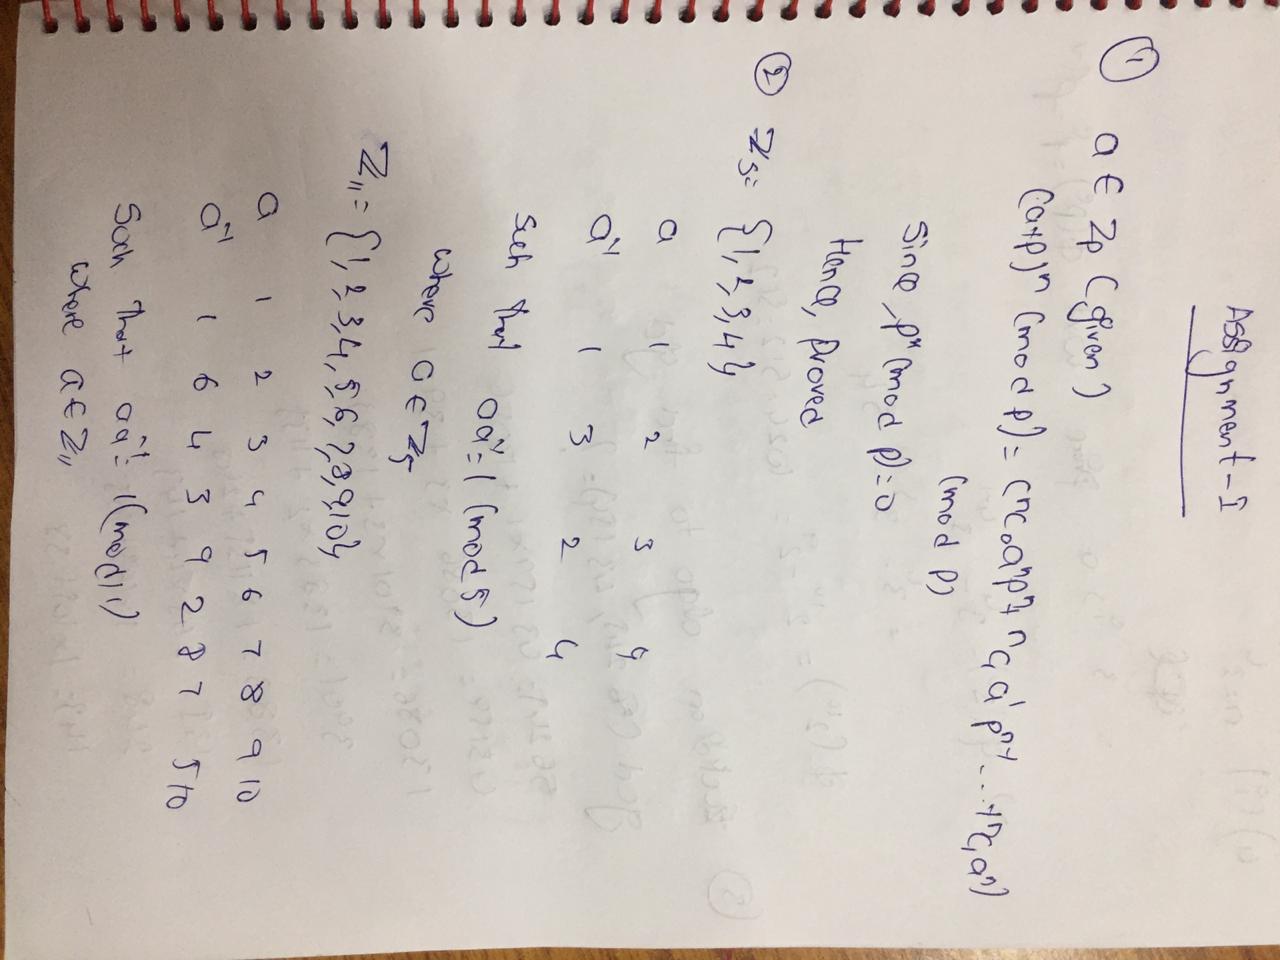 Assignment-I
① a ∈ Zp (given)
(a+p)ⁿ (mod p) = (nc₀a⁰pⁿ + nc₁a¹pⁿ⁻¹ + ... + nc,aⁿ)
(mod p)
Since, pⁿ (mod p) = 0
Hence, Proved
② Z₅ = {1, 2, 3, 4}
a 1 2 3 4
a⁻¹ 1 3 2 4
Such that aa⁻¹ = 1 (mod 5)
where a ∈ Z₅
Z₁₁ = {1, 2, 3, 4, 5, 6, 7, 8, 9, 10}
a 1 2 3 4 5 6 7 8 9 10
a⁻¹ 1 6 4 3 9 2 8 7 5 10
Such that aa⁻¹ = 1 (mod 11)
where a ∈ Z₁₁